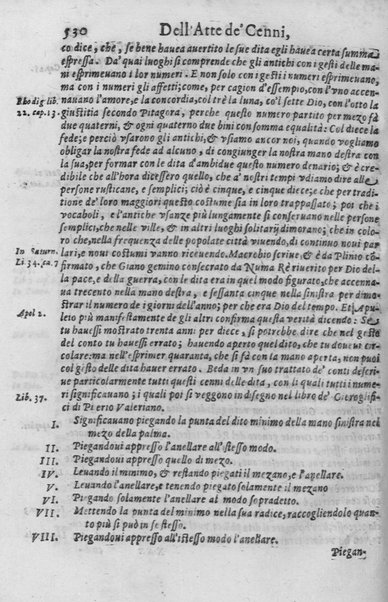 530 Dell'Arte de' Cenni,
codice, che, se bene hauea auertito le sue dita egli hauea certa summa
espressa. Da' quai luoghi si comprende che gli antichi con i gesti delle ma-
ni esprimeuano i lor numeri. E non solo con i gesti numeri esprimeuano,
ma con i numeri gli affetti; come, per cagion d'essempio, con l'vno accen-
Rhodig lib. nauano l'amore, e la concordia, col trè la luna, co'l sette Dio, con l'otto la
22. cap. 13. giustitia secondo Pitagora, perche questo numero partito per mezo fà
due quaterni, & ogni quaterno due bini con somma equalità. Col diece la
fede; perciò vsarono gli antichi, & vsiamo ancor noi, quando vogliamo
obligar la nostra fede ad alcuno, di congiunger la nostra mano destra con
la sua, per formar con le dita d'ambidue questo numero denario; & è cre-
dibile che all'hora dicessero quello, che a' nostri tempi vdiamo dire alle
persone rusticane, e semplici; ciò è cinque, e cinque diece; che per tradi-
tione de' loro maggiori questo costume sia in loro trappassato; poi che i
vocaboli, e l'antiche vsanze più lungamente si conseruano nelle persone
semplici, che nelle ville, & in altri luoghi solitarij dimorano; che in colo-
ro che, nella frequenza delle popolate città viuendo, di continuo noui par-
In Saturn. lari, e noui costumi vanno riceuendo. Macrobio scriue, & è da Plinio cō
Li. 34. ca. 7 firmato, che Giano gemino consecrato da Numa Rè riuerito per Dio del-
la pace, e della guerra, con le dita era in quel modo figurato, che accenna-
ua trecento nella mano destra, e sessanta cinque nella sinistra per dimo-
strar il numero de i giorni dell'anno; per che era Dio del tempo. Et Apu-
Apol 2. leio più manifestamente de gli altri confirma questa verità dicendo: Se
tu hauessi mostrato trenta anni per diece, si potrebbe dire che nel gesto
del conto tu hauessi errato; hauendo aperto quel dito, che tu doueui cir-
colare: ma nell'esprimer quaranta, che si fà con la mano aperta, non puoi
col gesto delle dita hauer errato. Beda in vn suo trattato de' conti descri-
ue particolarmente tutti questi cenni delle dita, con li quali tutti i nume-
Lib. 37. ri significauano; i quali poi si veggono in disegno nel libro de' Cieroglifi-
ci di Pierio Valeriano.
I. Significauano piegando la punta del dito minimo della mano sinistra nel
mezo della palma.
II. Piegandoui appresso l'anellare all'istesso modo.
III. Piegandoui appresso quello di mezo.
IV. Leuando il minimo, & restando piegati il mezano, e l'anellare.
V. Leuando l'anellare, e tenendo piegato solamente il mezano
VI. Piegando solamente l'anellare al modo sopradetto.
VII. Mettendo la punta del minimo nella sua radice, raccogliendolo quan-
to più si può in se stesso.
VIII. Piegandoui appresso all'istesso modo l'anellare.
Piegan-